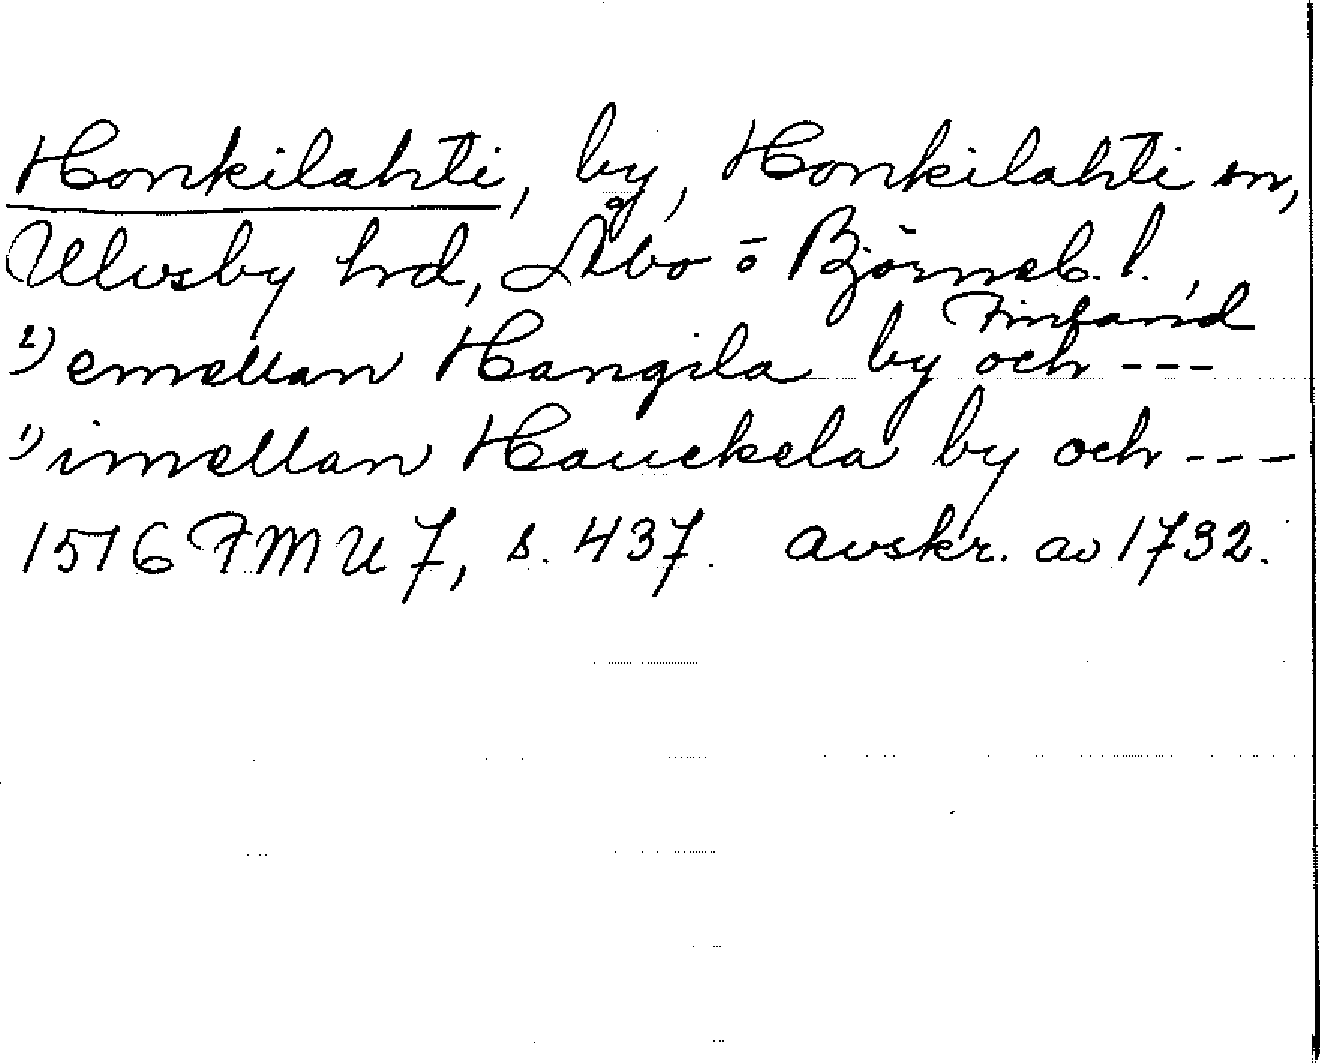 Honkilahti, by, Honkilahti sn,
Ulvsby hrd, Åbo o Björneb. l.,
Finland
2) emellan Hangila by och ---
1) imellan Hauckela by och ---
1516 FMU 7, s. 437. Avskr. av 1732.